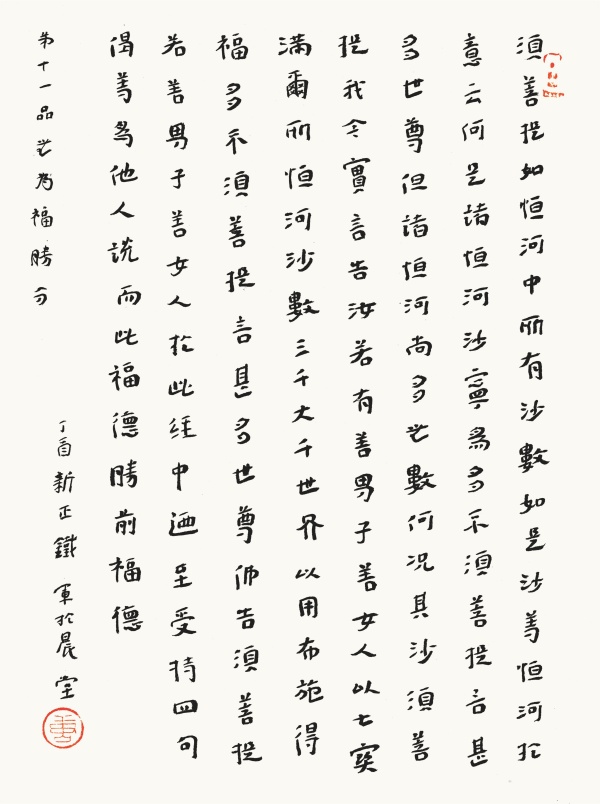 須菩提如恒河中所有沙數如是沙等恒河於
意云何是諸恒河沙寧為多不須菩提言甚
多世尊但諸恒河尚多无數何况其沙須菩
提我今實言告汝若有善男子善女人以七寳
滿爾所恒河沙數三千大千世界以用布施得
福多不須菩提言甚多世尊佛告須菩提
若善男子善女人於此經中迺至受持四句
偈等為他人説而此福德勝前福德
第十一品无為福勝分
丁酉新正鐵軍於晨堂